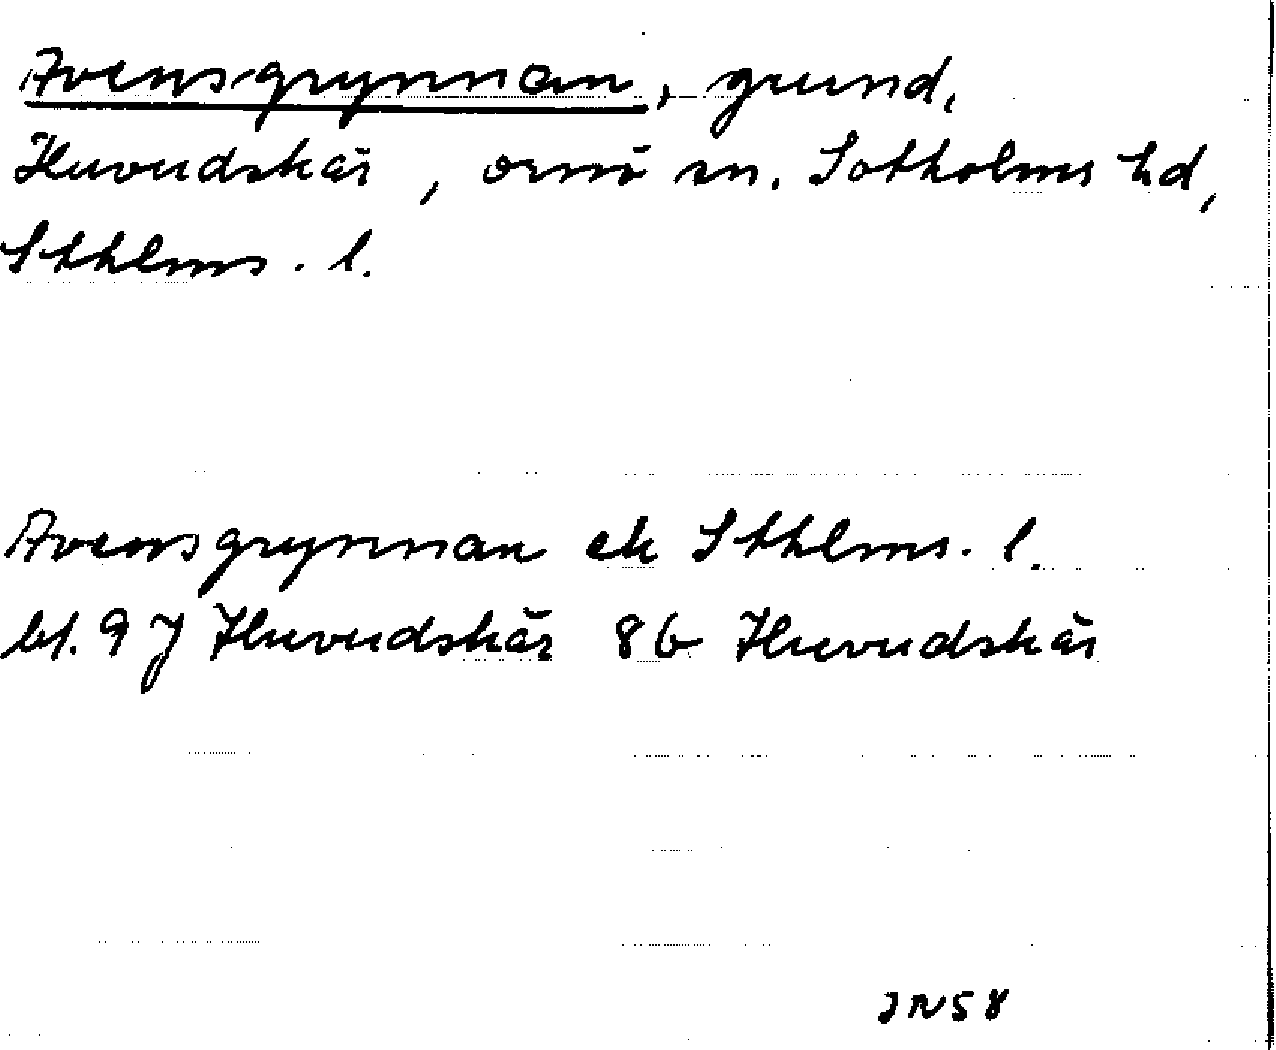 Avensgrynnan, grund,
Huvudskär, ornö sn. Sotholms hd,
Sthlms. l.
Avensgrynnan ek Sthlms. l.
bl. 9 J Huvudskär 86 Huvudskär
JN58